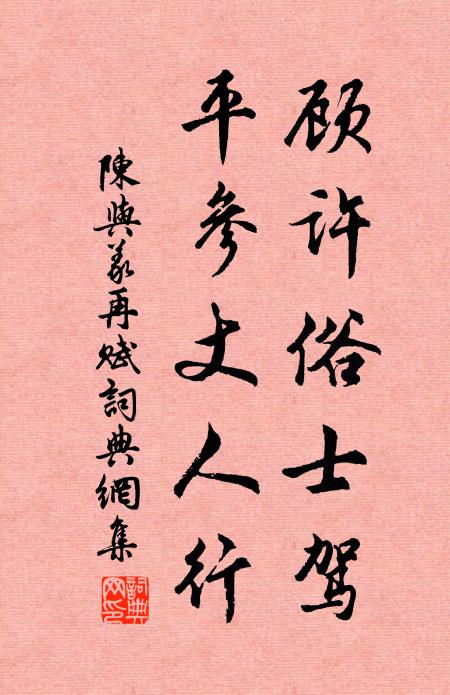 顾许俗士驾
平参丈人行
陳與義再賦詞典網集
詞典网印